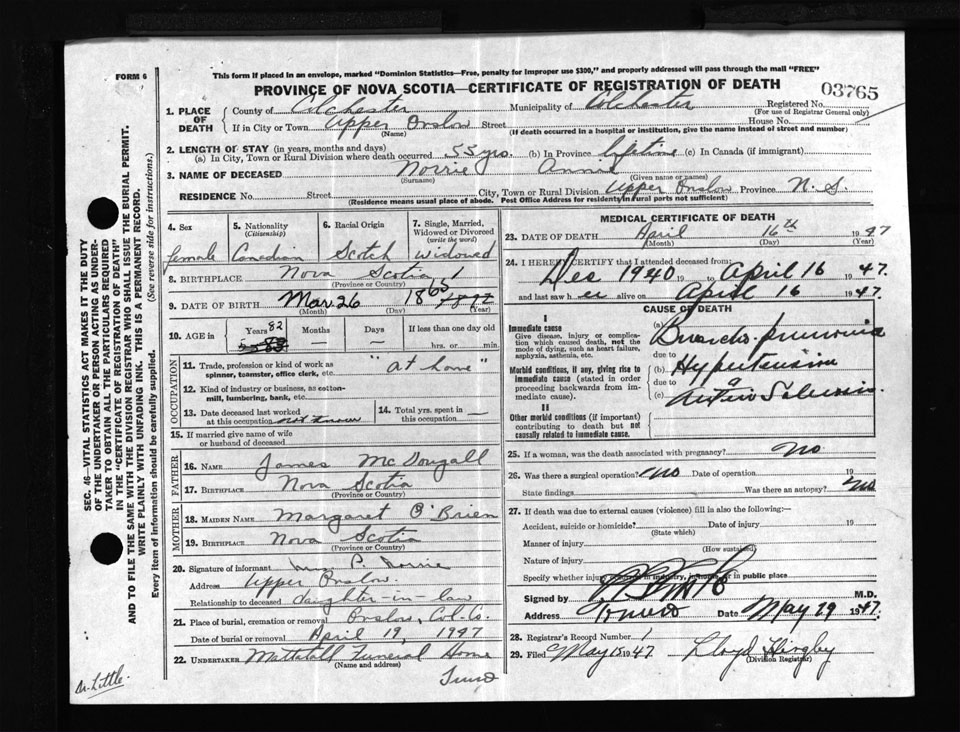 FORM 6
This form if placed in an envelope, marked "Dominion Statistics—Free, penalty for improper use $300," and properly addressed will pass through the mail "FREE"
PROVINCE OF NOVA SCOTIA—CERTIFICATE OF REGISTRATION OF DEATH
03765
1. PLACE OF DEATH
County of Colchester Municipality of Colchester Registered No.
(For use of Registrar General only)
If in City or Town Upper Onslow Street House No.
(Name) (If death occurred in a hospital or institution, give the name instead of street and number)
2. LENGTH OF STAY (in years, months and days)
(a) In City, Town or Rural Division where death occurred 55 yrs. (b) In Province lifetime (c) In Canada (if immigrant)
3. NAME OF DECEASED Norrie Annie
(Surname) (Given name or names)
RESIDENCE No. Street City, Town or Rural Division Upper Onslow Province N.S.
(Residence means usual place of abode. Post Office Address for residents in rural parts not sufficient)
4. Sex female
5. Nationality (Citizenship) Canadian
6. Racial Origin Scotch
7. Single, Married, Widowed or Divorced (write the word) widowed
8. BIRTHPLACE Nova Scotia
(Province or Country)
9. DATE OF BIRTH Mar 26 1865
(Month) (Day) (Year)
10. AGE in Years 82 Months — Days — If less than one day old hrs. or min.
OCCUPATION
11. Trade, profession or kind of work as spinner, teamster, office clerk, etc. "at home"
12. Kind of industry or business, as cotton-mill, lumbering, bank, etc.
13. Date deceased last worked at this occupation not known
14. Total yrs. spent in this occupation —
15. If married give name of wife or husband of deceased
FATHER
16. NAME James McDougall
17. BIRTHPLACE Nova Scotia
(Province or Country)
MOTHER
18. MAIDEN NAME Margaret O'Brien
19. BIRTHPLACE Nova Scotia
(Province or Country)
20. Signature of informant P. Norrie
Address Upper Onslow.
Relationship to deceased daughter-in-law
21. Place of burial, cremation or removal Onslow, Col. Co.
Date of burial or removal April 19, 1947
22. UNDERTAKER Mattatall Funeral Home
(Name and address)
Truro
MEDICAL CERTIFICATE OF DEATH
23. DATE OF DEATH April 16th 1947
(Month) (Day) (Year)
24. I HEREBY CERTIFY that I attended deceased from:
Dec 1940 19 to April 16 1947.
and last saw her alive on April 16 1947.
CAUSE OF DEATH
I
Immediate cause
Give disease, injury or complication which caused death, not the mode of dying, such as heart failure, asphyxia, asthenia, etc.
Morbid conditions, if any, giving rise to immediate cause (stated in order proceeding backwards from immediate cause).
II
Other morbid conditions (if important) contributing to death but not causally related to immediate cause.
(a) Broncho-pneumonia
due to
(b) Hypertension
due to
(c) Arterio Sclerosis.
25. If a woman, was the death associated with pregnancy? no
26. Was there a surgical operation? no Date of operation 19
State findings Was there an autopsy? no
27. If death was due to external causes (violence) fill in also the following:—
Accident, suicide or homicide? Date of injury 19
(State which)
Manner of injury
(How sustained)
Nature of injury
Specify whether injury occurred in industry, in home or in public place
Signed by M.D.
Address Truro Date May 29 1947.
28. Registrar's Record Number 1
29. Filed May 15 1947 Lloyd
(Division Registrar)
SEC. 46—VITAL STATISTICS ACT MAKES IT THE DUTY
OF THE UNDERTAKER OR PERSON ACTING AS UNDER-
TAKER TO OBTAIN ALL THE PARTICULARS REQUIRED
IN THE "CERTIFICATE OF REGISTRATION OF DEATH"
AND TO FILE THE SAME WITH THE DIVISION REGISTRAR WHO SHALL ISSUE THE BURIAL PERMIT.
WRITE PLAINLY WITH UNFADING INK. THIS IS A PERMANENT RECORD.
Every item of information should be carefully supplied. (See reverse side for instructions.)
Dr. Little.